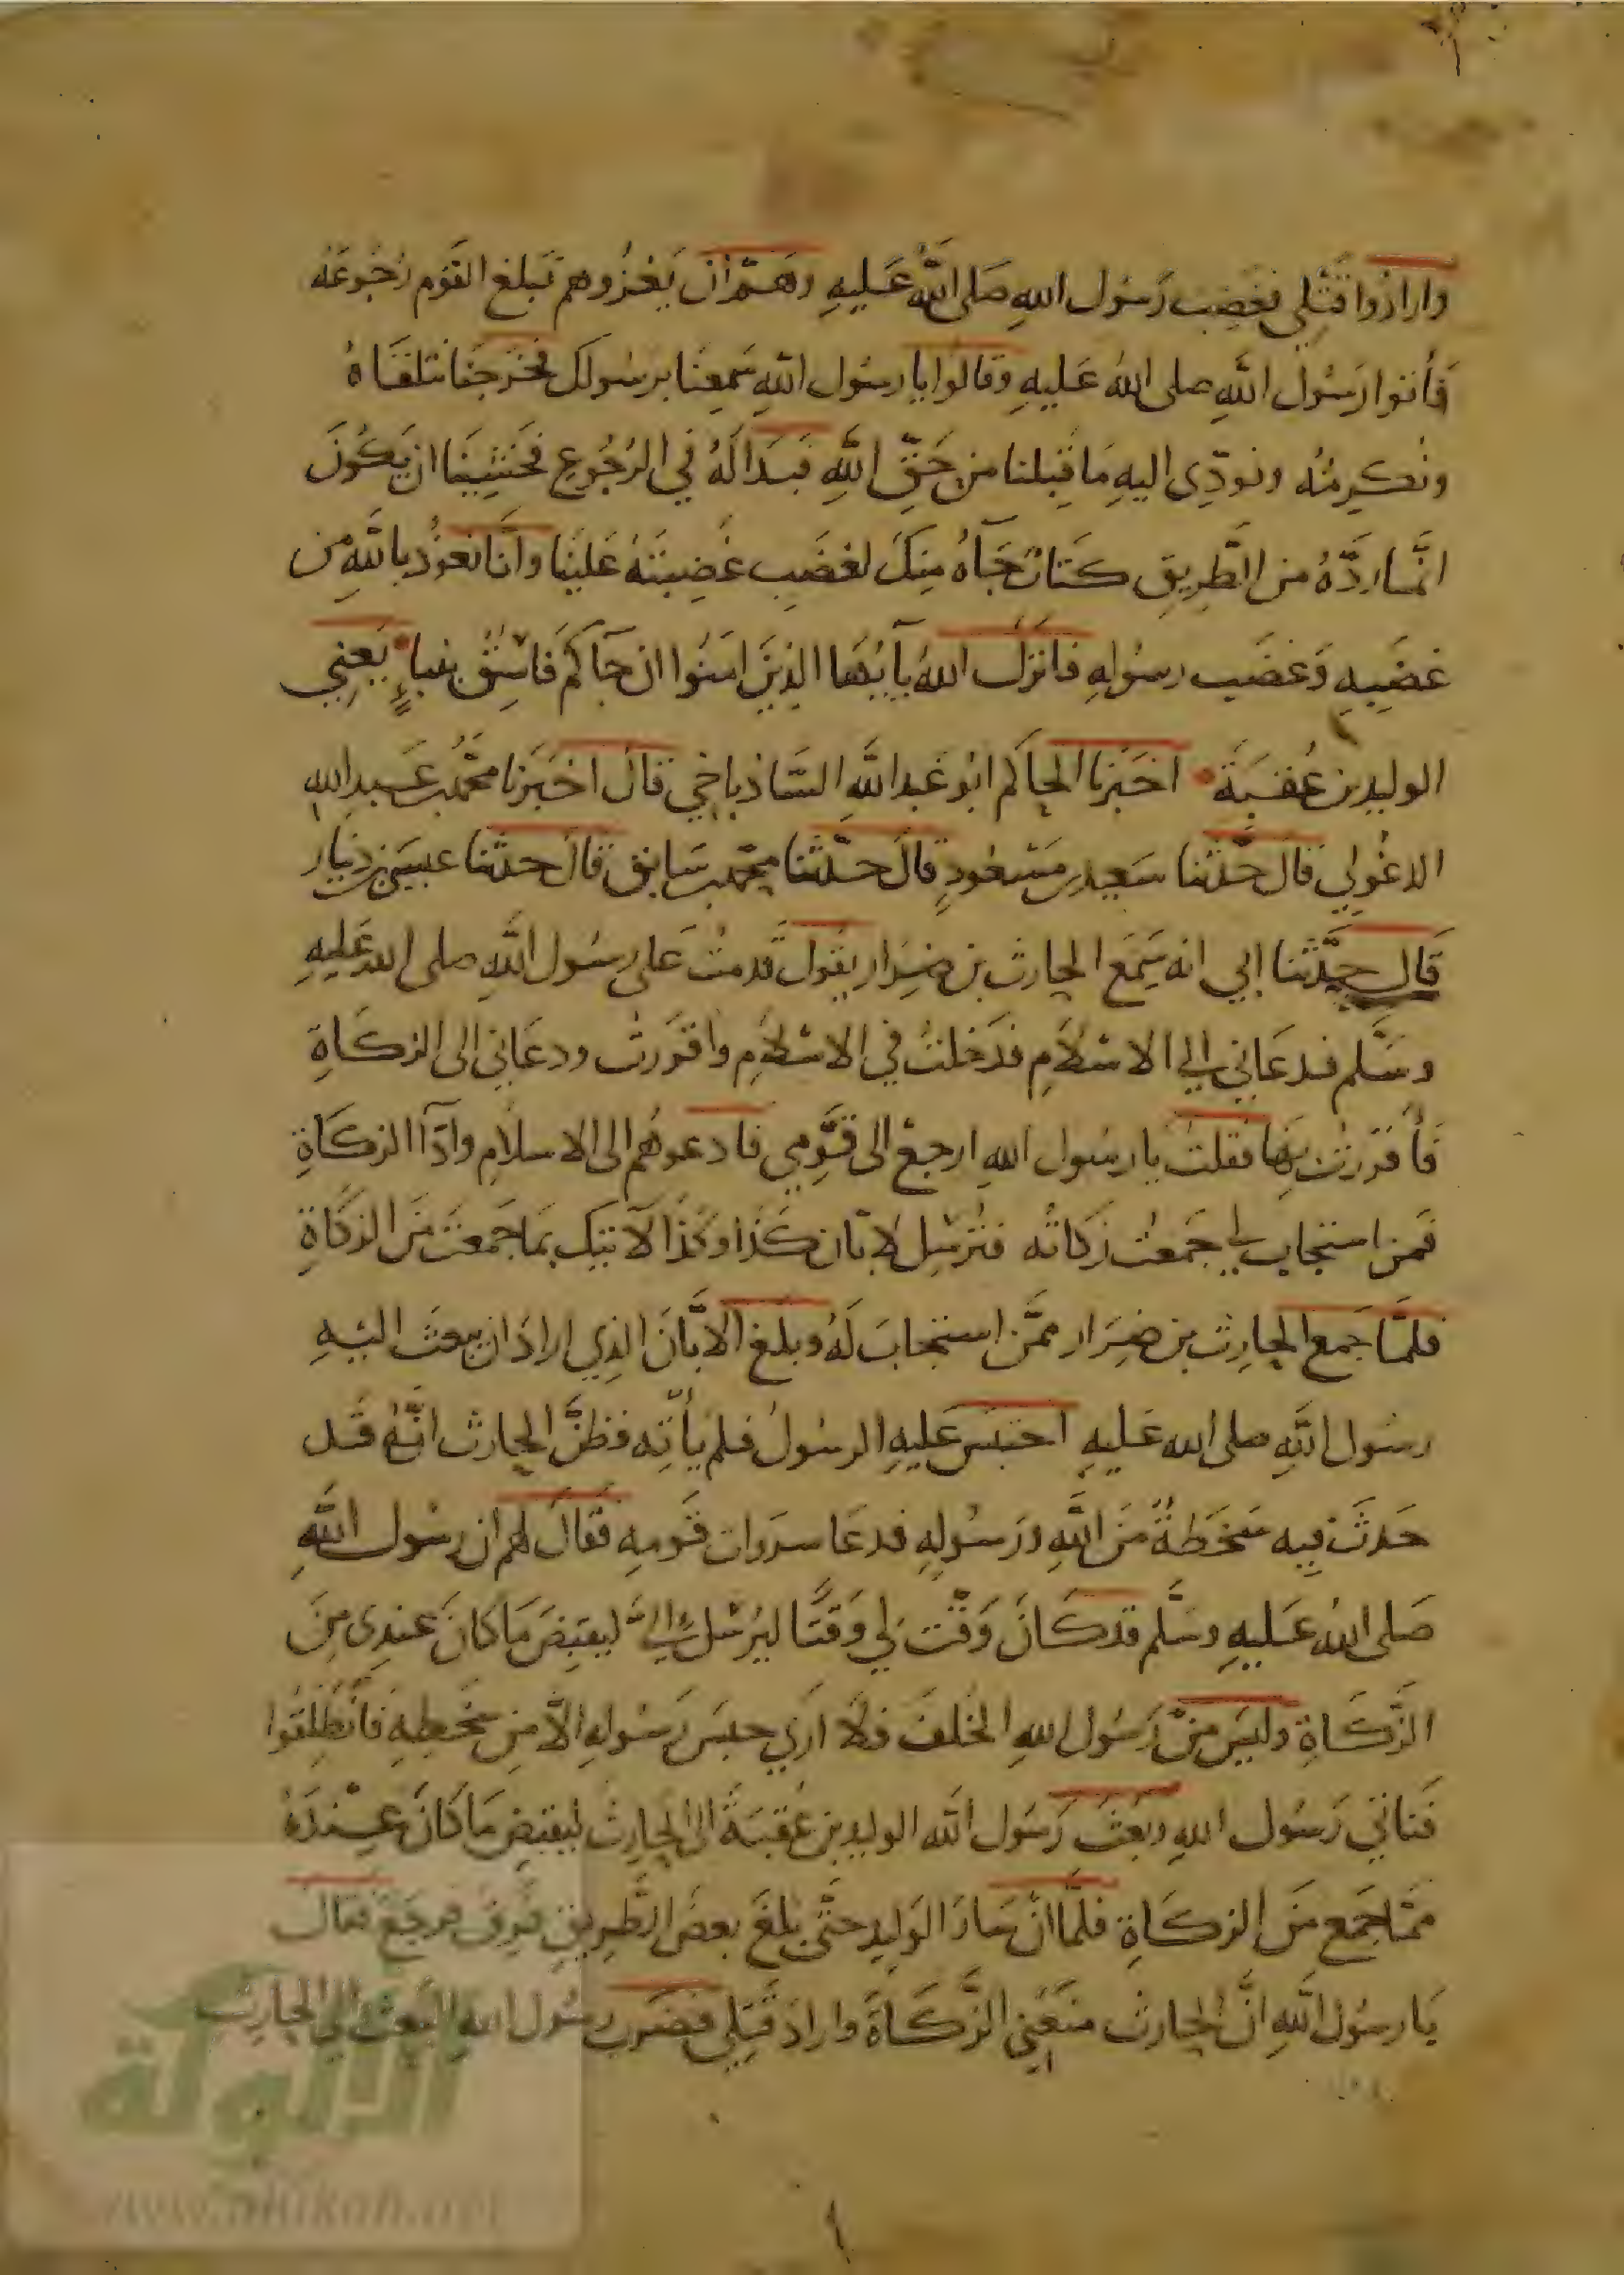 وارادوا قتلي فغضِبَ رَسُول اللهِ صَلى اللهُ عَليهِ وهَمَّ ان يَغزُوهم فبلغ القَوم رُجُوعَهُ
فأتوا رَسُولَ اللهِ صلى اللهُ عَليهِ وقالوا يا رسُول اللهِ سَمِعنا برسُولك فخَرجنا نتلقاهُ
ونُكرمُه ونودّي اليهِ مَا قِبلنا من حَقِّ اللهِ فبَدا لَهُ في الرُجُوع فخَشِينا ان يَكُونَ
انَّما ردَّهُ من الطَّرِيق كتابٌ جَآءَهُ مِنكَ لغضَبٍ غَضِبتَهُ عَلينا وانَّا نعُوذُ باللهِ من
غضَبِهِ وَغضَب رسُولِهِ فانزلَ اللهُ يآيُّها الذِينَ امَنُوا ان جآكم فاسِق بنباءٍ يَعني
الوليد بن عُقبَةَ اخبَرنا الحاكم ابُو عَبدالله الشاذياخي قال اخبَرنا محمَّد بن عَبدالله
الدغُولي قالَ حدَّثنا سَعيد بن مَسْعُودٍ قالَ حدّثنا محمَّد بن سَابق قالَ حدثنا عيسَى بن دينار
قالَ حدَّثنا ابي انه سَمِعَ الحارث بن ضِرَار يقُول قدمتُ عَلى رسُول اللهِ صلى الله عَليهِ
وسَلَّم فدعَاني الى الاسْلَامِ فدَخلتُ في الاسْلَامِ واقررت ودعَاني الى الزكَاةِ
فأقرَرتُ بِها فقلت يا رسُول اللهِ ارجعُ الى قَومي فادعوهُم الى الاسلام وادَآ الزكَاةِ
فمن استجابَ لي جَمعتُ زكاتُه فتُرسِل لابّان كَذا وكذا لآتيك بمَا جَمعتُ مِنَ الزكاةِ
فلمَّا جَمع الحارِث بن ضِرَار ممَّن استجابَ لَهُ وبلغ الابَّانَ الذِي ارادَ ان يبعَث اليهِ
رسُول اللهِ صلى الله عَليهِ احتبَسَ عَليهِ الرسُولُ فلم يأتِه فظنَّ الحارث انَّهُ قد
حَدثَ فِيه سَخطَةٌ مِنَ اللهِ ورَسُولِهِ فدعَا سَروات قَومِهِ فقالَ لهم ان رسُول اللهِ
صَلى اللهُ عَليهِ وسَلَّم قد كَانَ وَقَّت لِي وَقتًا ليُرْسل اليَّ ليقبِضَ مَا كانَ عندِي مِنَ
الزَّكَاةِ وليسَ مِنْ رَسُول اللهِ الخُلف ولَا ارَي حبسَ رَسُولِهِ الّا مِن سَخطِهِ فانطلِقوا
فنأتي رَسُول اللهِ وبعَثَ رَسُول اللهِ الوليد بن عُقبَةَ الى الحارثِ ليقبض مَا كانَ عِندَهُ
ممّا جَمع مِنَ الزكَاةِ فلمَّا ان سَارَ الوَليد حتّى بلغَ بعضَ الطَّرِيق فرِق فرجَعَ فقال
يَا رسُول اللهِ انَّ الحارث منعَني الزَّكَاةَ واراد قتلِي فضَرب رسُول اللهِ البَعث الى الحارِث
الألوكة
www.alukah.net